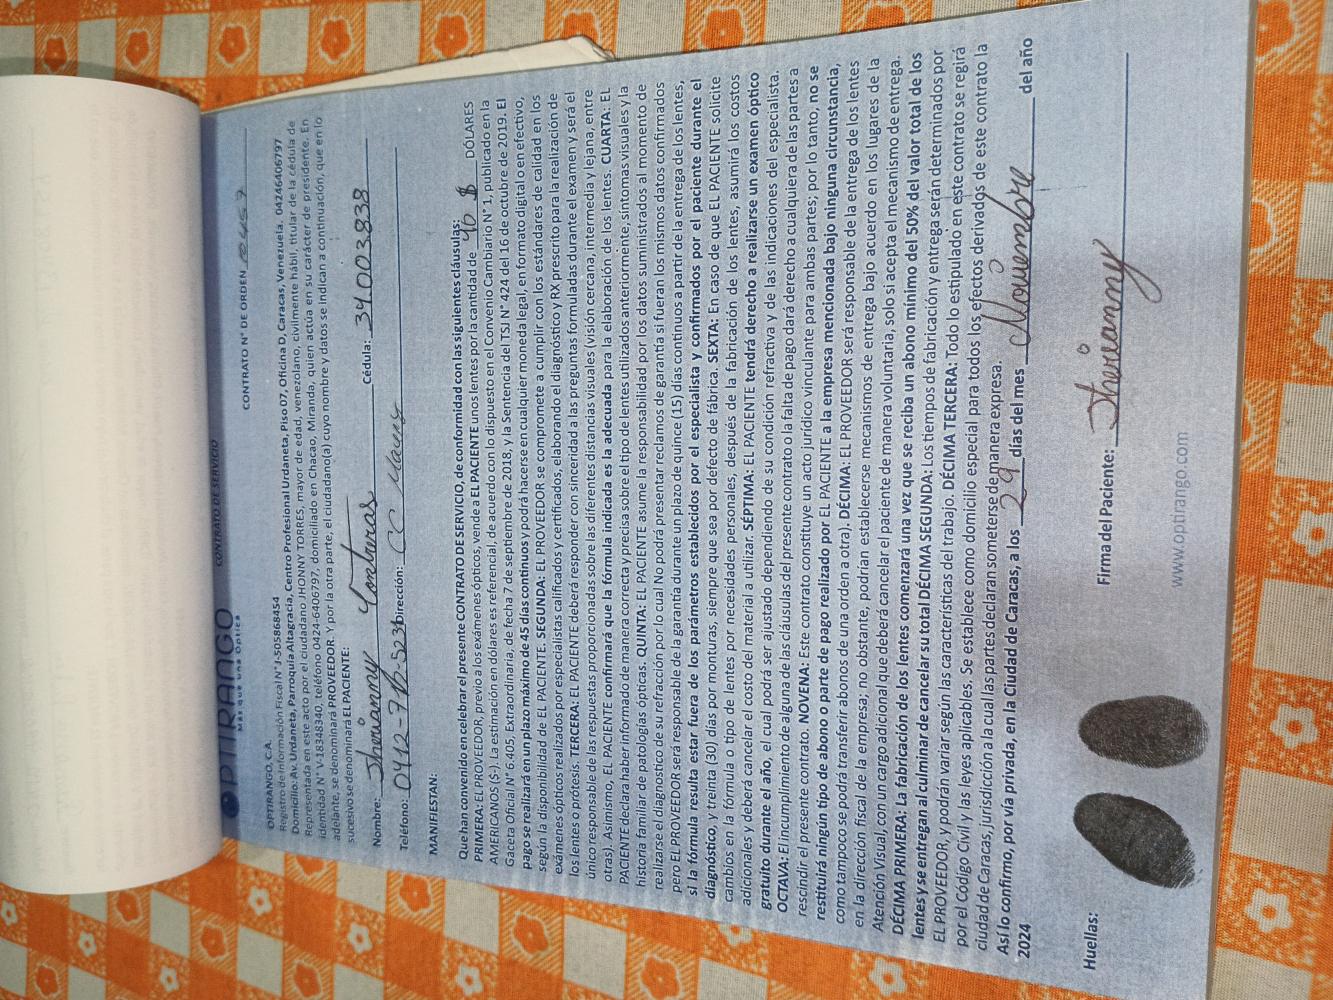 OPTIRANGO
MÁS QUE UNA ÓPTICA
CONTRATO DE SERVICIO
CONTRATO N° DE ORDEN
OPTIRANGO, C.A.
Registro de Información Fiscal N° J-505868454
Domicilio: Av. Urdaneta, Parroquia Altagracia, Centro Profesional Urdaneta, Piso 07, Oficina D, Caracas, Venezuela. 04246406797
Representada en este acto por el ciudadano JHONNY TORRES, mayor de edad, venezolano, civilmente hábil, titular de la cédula de
identidad N° V-18348340, teléfono 0424-6406797, domiciliado en Chacao, Miranda, quien actúa en su carácter de presidente. En
adelante, se denominará PROVEEDOR. Y por la otra parte, el ciudadano(a) cuyo nombre y datos se indican a continuación, que en lo
sucesivo se denominará EL PACIENTE:
Nombre: Jherianny Contreras Cédula: 34.003.838
Teléfono: Dirección: CC
MANIFIESTAN:
Que han convenido en celebrar el presente CONTRATO DE SERVICIO, de conformidad con las siguientes cláusulas:
PRIMERA: El PROVEEDOR, previo a los exámenes ópticos, vende a EL PACIENTE unos lentes por la cantidad de 40 $ DÓLARES
AMERICANOS ($-). La estimación en dólares es referencial, de acuerdo con lo dispuesto en el Convenio Cambiario N° 1, publicado en la
Gaceta Oficial N° 6.405. Extraordinaria, de fecha 7 de septiembre de 2018, y la Sentencia del TSJ N° 424 del 16 de octubre de 2019. El
pago se realizará en un plazo máximo de 45 días continuos y podrá hacerse en cualquier moneda legal, en formato digital o en efectivo,
según la disponibilidad de EL PACIENTE. SEGUNDA: EL PROVEEDOR se compromete a cumplir con los estándares de calidad en los
exámenes ópticos realizados por especialistas calificados y certificados, elaborando el diagnóstico y RX prescrito para la realización de
los lentes o prótesis. TERCERA: EL PACIENTE deberá responder con sinceridad a las preguntas formuladas durante el examen y será el
único responsable de las respuestas proporcionadas sobre las diferentes distancias visuales (visión cercana, intermedia y lejana, entre
otras). Asimismo, EL PACIENTE confirmará que la fórmula indicada es la adecuada para la elaboración de los lentes. CUARTA: EL
PACIENTE declara haber informado de manera correcta y precisa sobre el tipo de lentes utilizados anteriormente, síntomas visuales y la
historia familiar de patologías ópticas. QUINTA: EL PACIENTE asume la responsabilidad por los datos suministrados al momento de
realizarse el diagnostico de su refracción por lo cual No podrá presentar reclamos de garantía si fueran los mismos datos confirmados
pero EL PROVEEDOR será responsable de la garantía durante un plazo de quince (15) días continuos a partir de la entrega de los lentes,
si la fórmula resulta estar fuera de los parámetros establecidos por el especialista y confirmados por el paciente durante el
diagnóstico, y treinta (30) días por monturas, siempre que sea por defecto de fábrica. SEXTA: En caso de que EL PACIENTE solicite
cambios en la fórmula o tipo de lentes por necesidades personales, después de la fabricación de los lentes, asumirá los costos
adicionales y deberá cancelar el costo del material a utilizar. SÉPTIMA: EL PACIENTE tendrá derecho a realizarse un examen óptico
gratuito durante el año, el cual podrá ser ajustado dependiendo de su condición refractiva y de las indicaciones del especialista.
OCTAVA: El incumplimiento de alguna de las cláusulas del presente contrato o la falta de pago dará derecho a cualquiera de las partes a
rescindir el presente contrato. NOVENA: Este contrato constituye un acto jurídico vinculante para ambas partes; por lo tanto, no se
restituirá ningún tipo de abono o parte de pago realizado por EL PACIENTE a la empresa mencionada bajo ninguna circunstancia,
como tampoco se podrá transferir abonos de una orden a otra). DÉCIMA: El PROVEEDOR será responsable de la entrega de los lentes
en la dirección fiscal de la empresa, no obstante, podrían establecerse mecanismos de entrega bajo acuerdo en los lugares de la
Atención Visual, con un cargo adicional que deberá cancelar el paciente de manera voluntaria, solo si acepta el mecanismo de entrega.
DÉCIMA PRIMERA: La fabricación de los lentes comenzará una vez que se reciba un abono mínimo del 50% del valor total de los
lentes y se entregan al culminar de cancelar su total DÉCIMA SEGUNDA: Los tiempos de fabricación y entrega serán determinados por
EL PROVEEDOR, y podrán variar según las características del trabajo. DÉCIMA TERCERA: Todo lo estipulado en este contrato se regirá
por el Código Civil y las leyes aplicables. Se establece como domicilio especial para todos los efectos derivados de este contrato la
ciudad de Caracas, jurisdicción a la cual las partes declaran someterse de manera expresa.
Así lo confirmo, por vía privada, en la Ciudad de Caracas, a los 29 días del mes Noviembre del año
2024
Huellas: Firma del Paciente: Jherianny
www.optirango.com